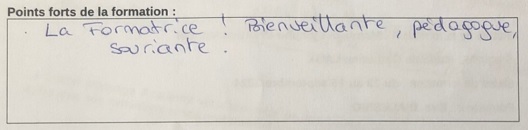 Points forts de la formation :
. La Formatrice ! Bienveillante, pédagogue,
souriante.